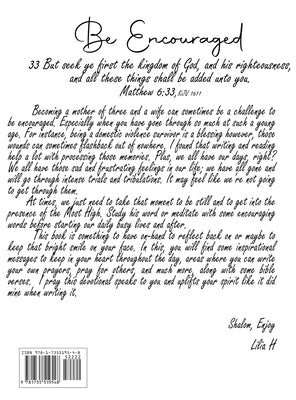 Be Encouraged
33 But seek ye first the kingdom of God, and his righteousness,
and all these things shall be added unto you.
Matthew 6:33, KJV 1611
Becoming a mother of three and a wife can sometimes be a challenge to
be encouraged, Especially when you have gone through so much at such a young
age. For instance, being a domestic violence survivor is a blessing however, those
wounds can sometimes flashback out of nowhere. I found that writing and reading
help a lot with processing those memories. Plus, we all have our days, right?
We all have those sad and frustrating feelings in our life; we have all gone and
will go through intense trials and tribulations. It may feel like we're not going
to get through them.
At times, we just need to take that moment to be still and to get into the
presence of the Most High. Study his word or meditate with some encouraging
words before starting our daily busy lives and after.
This book is something to have on-hand to reflect back on or maybe to
keep that bright smile on your face. In this, you will find some inspirational
messages to keep in your heart throughout the day, areas where you can write
your own prayers, pray for others, and much more, along with some bible
verses. I pray this devotional speaks to you and uplifts your spirit like it did
mine when writing it.
Shalom, Enjoy
Lilia H